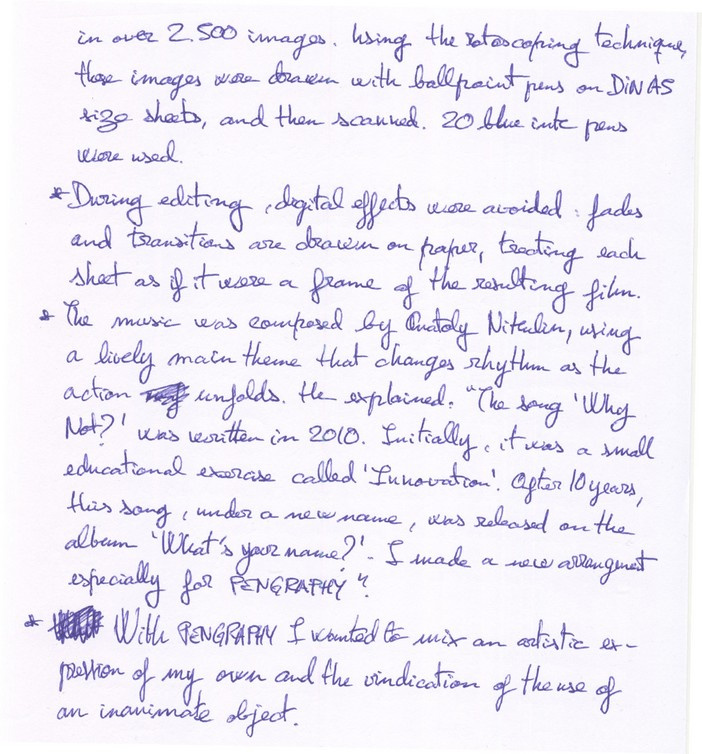 in over 2.500 images. Using the rotoscoping technique,
these images were drawn with ballpoint pens on DIN A5
size sheets, and then scanned. 20 blue ink pens
were used.
* During editing, digital effects were avoided: fades
and transitions are drawn on paper, treating each
sheet as if it were a frame of the resulting film.
* The music was composed by Anatoly Nikulin, using
a lively main theme that changes rhythm as the
action unfolds. He explained: "The song 'Why
Not?' was written in 2010. Initially, it was a small
educational exercise called 'Innovation'. After 10 years,
this song, under a new name, was released on the
album 'What's your name?'. I made a new arrangment
especially for PENGRAPHY".
* With PENGRAPHY I wanted to mix an artistic ex-
pression of my own and the vindication of the use of
an inanimate object.